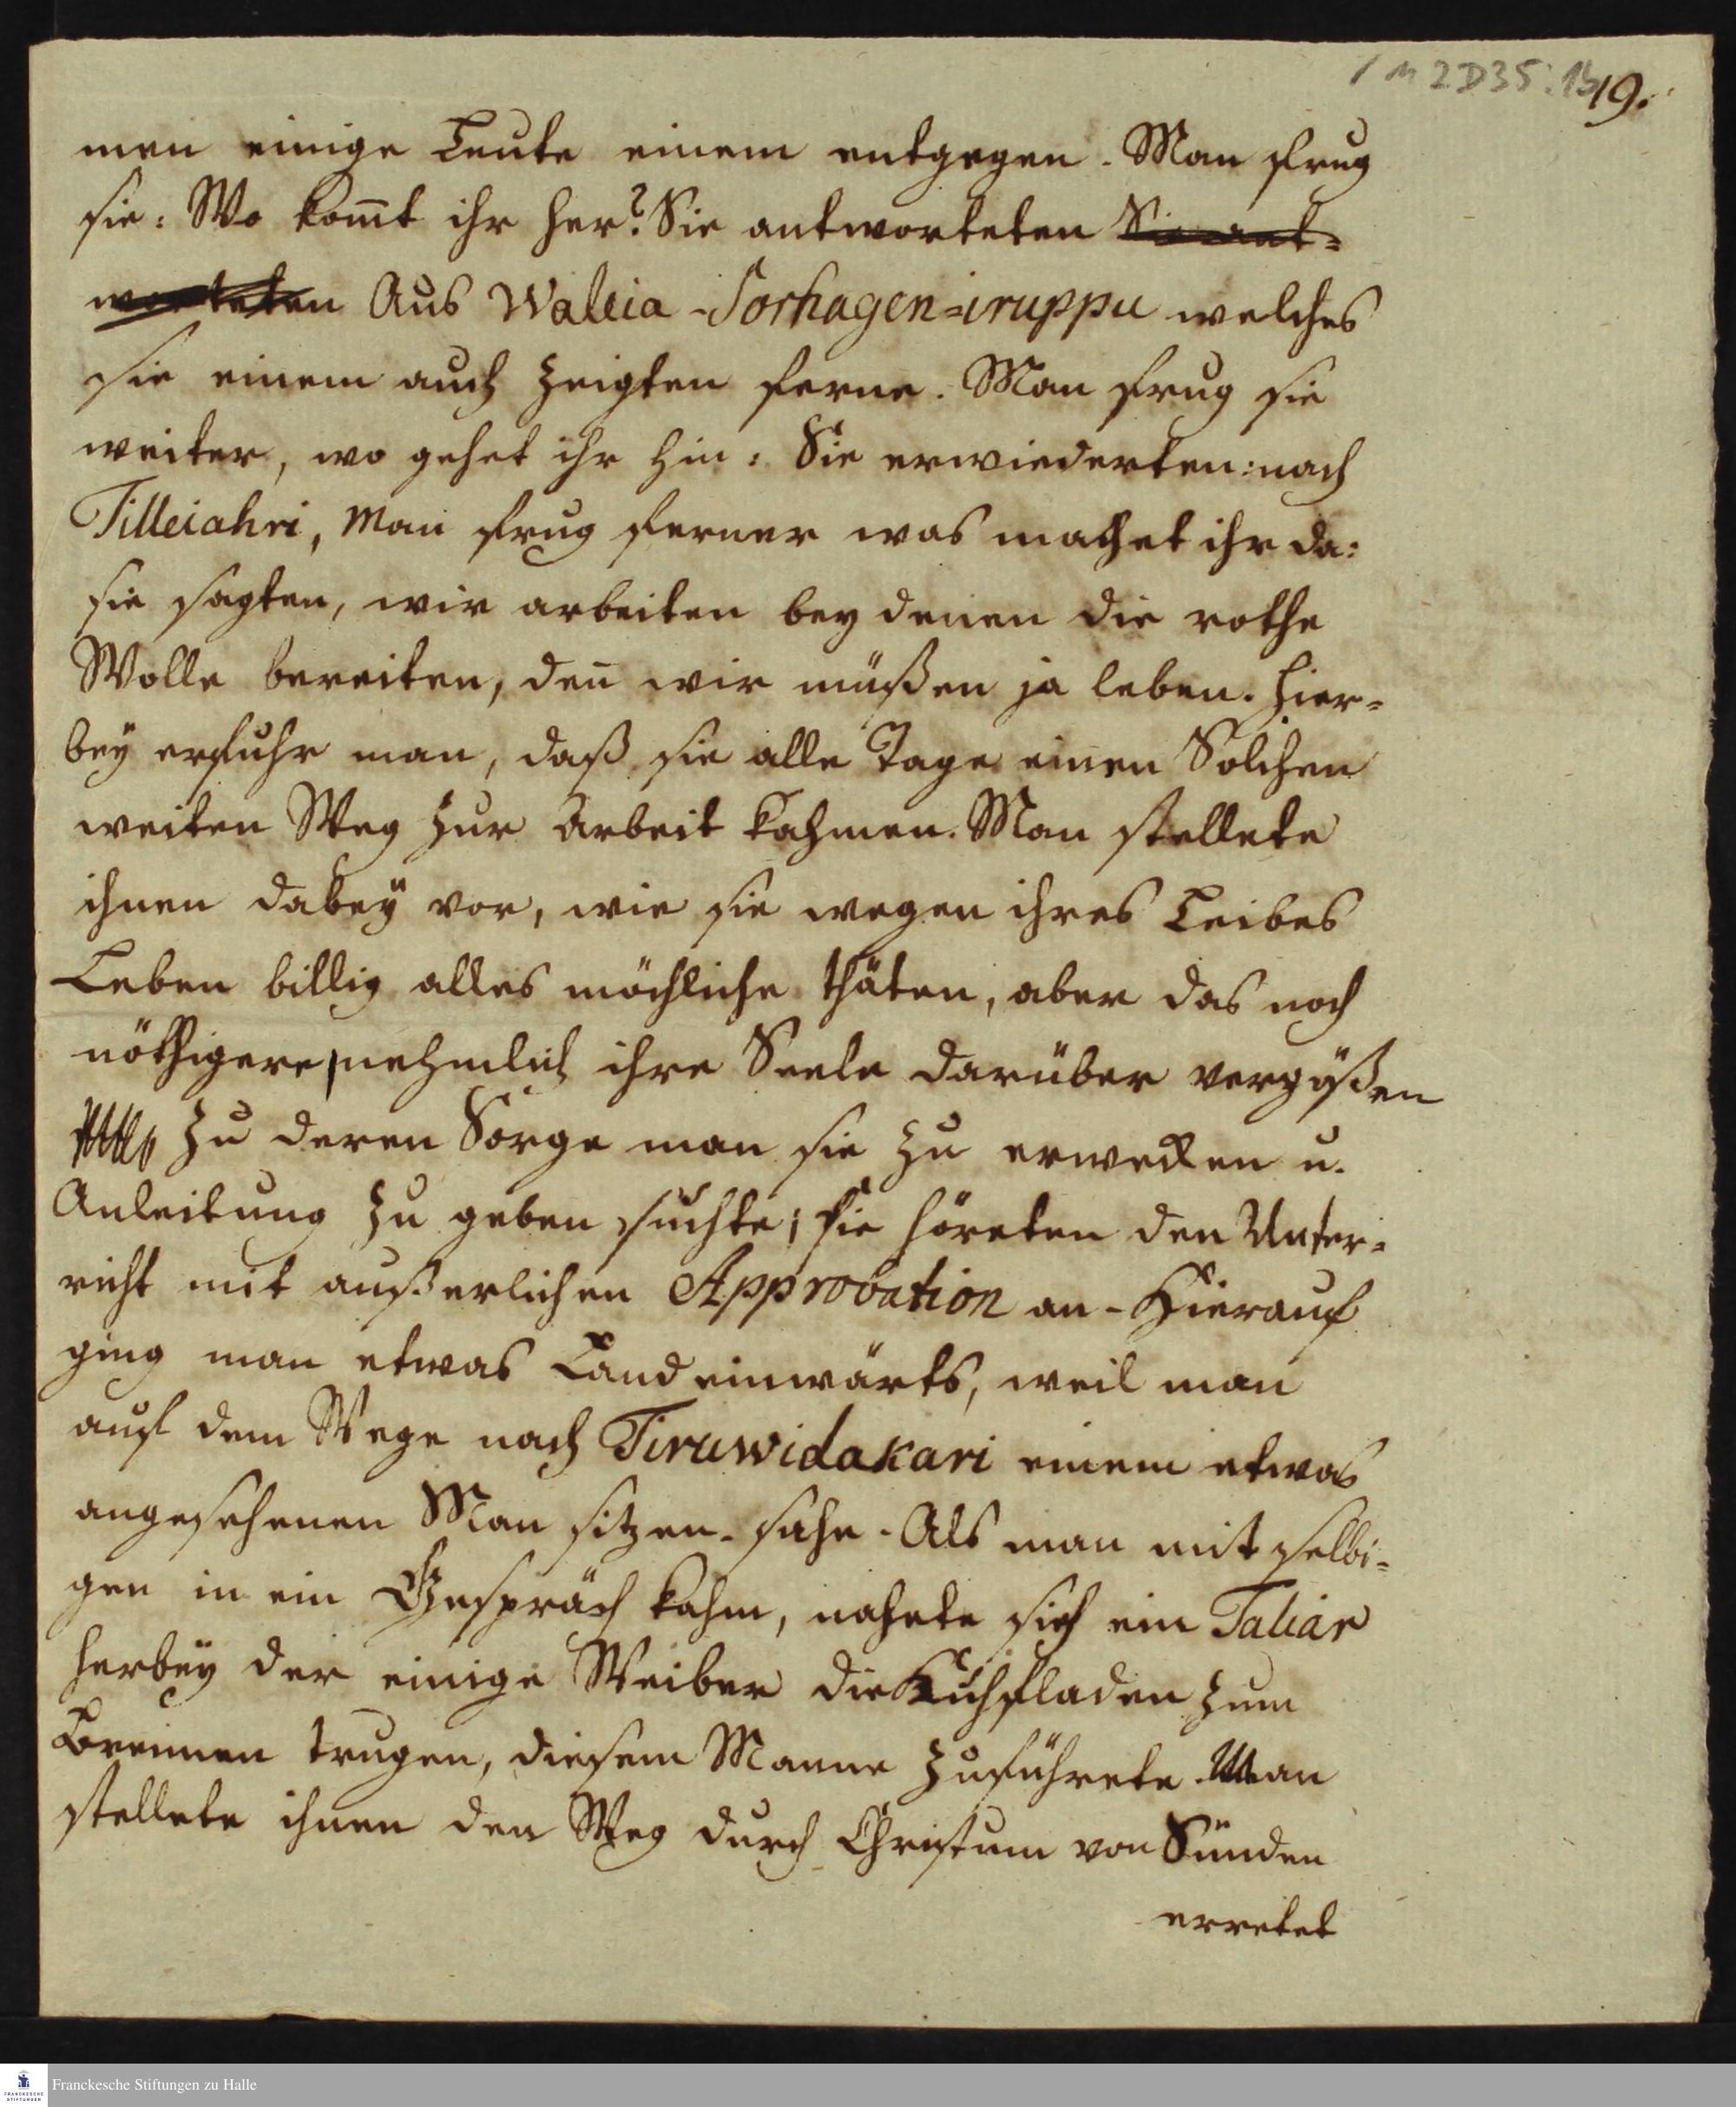 1 M 2 D 35 : 15
19.
men einige Leute einem entgegen. Man frug
sie: Wo kom̅t ihr her? Sie antworteten Sie ant-
worteten Aus Waleia-Sorhagen-iruppu welches
sie einem auch zeigten ferne. Man frug sie
weiter, wo gehet ihr hin: Sie erwiederten: nach
Tilleiahri, Man frug ferner was machet ihr da:
sie sagten, wir arbeiten bey denen die rothe
Wolle bereiten, den̅ wir müßen ja leben. Hier-
bey erfuhr man, daß sie alle Tage einen Solchen
weiten Weg zur Arbeit kahmen. Man stellete
ihnen dabey vor, wie sie wegen ihres Leibes
Leben billig alles möchliche thäten, aber das noch
nöthigere, nehmlich ihre Seele darüber vergäßen
zu deren Sorge man sie zu erwecken u.
Anleitung zu geben suchte; sie höreten den Unter-
richt mit außerlichen Approbation an. Hierauf
ging man etwas Landeinwärts, weil man
auf dem Wege nach Tiruwidakari einem etwas
angesehenen Man sitzen sahe. Als man mit selbi-
gen in ein Gespräch kahm, nahete sich ein Taliar
herbey der einige Weiber die Kuhfladen zum
Brennen trugen, diesem Manne zuführete. Man
stellete ihnen den Weg durch Christum von Sünden
erretet
Franckesche Stiftungen zu Halle